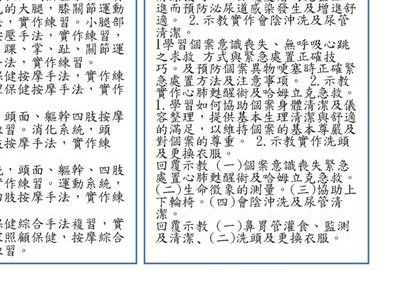 的大腿、膝關節運動
，實作練習。小腿部
按壓手法，實作練習，
、踝、掌、趾、關節運
手法，實作練習。
保健按摩手法，實作練
2保健按摩手法，實作
、頭面、軀幹四肢按摩
習。消化系統，頭
肢按摩手法，實作練
，頭面、軀幹、四肢
作練習。運動系統，
幹、四肢按摩手法，
保健綜合手法複習，實
照顧保健，按摩綜合
習。
進而預防泌尿道感染發生及增進舒
適。 2.示教實作會陰沖洗及尿管
清潔。
1學習個案意識喪失、無呼吸心跳
之求救 方式與緊急處置正確技
巧。及預防個案異物哽塞時正確緊
急處置方法及注意事項。 2.示教
實作心肺甦醒術及哈姆立克急救。
1.學習如何協助個案身體清潔及儀
容整理，提供基本生理清潔與舒適
的滿足，以維持個案的基本尊嚴及
對個案的尊重。 2.示教實作洗頭
及更換衣服。
回覆示教 (一)個案意識喪失緊急
處置心肺甦醒術及哈姆立克急救。
(二)生命徵象的測量。(三)協助上
下輪椅。(四)會陰沖洗及尿管清
潔。
回覆示教 (一)鼻胃管灌食、監測
及清潔、(二)洗頭及更換衣服。